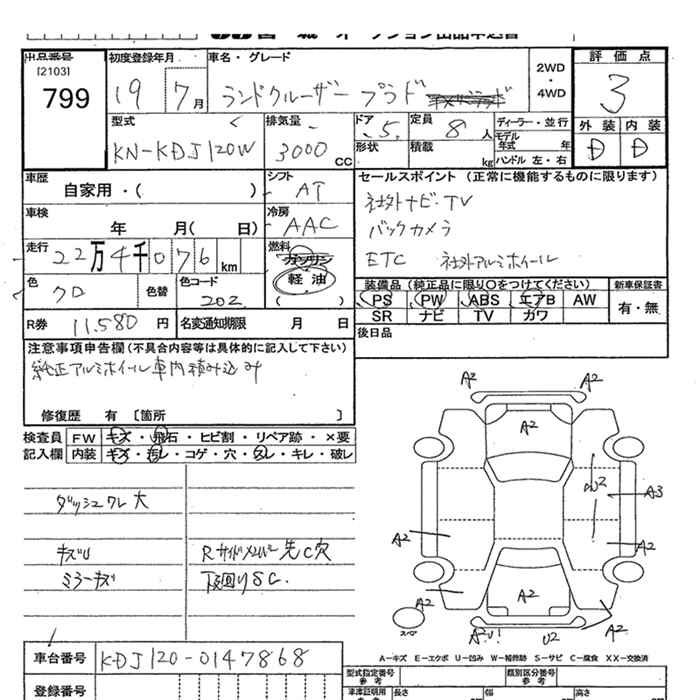 出品番号 初度登録年月 車名・グレード 2WD・4WD 評価点
[2103]
799 19 7月 ランドクルーザー プラド 3
型式 排気量 ドア 定員 ディーラー・並行 外装 内装
KN-KDJ120W 3000CC 5 8人 モデル年式 年 D D
形状 積載 kg ハンドル 左・右
車歴 シフト セールスポイント (正常に機能するものに限ります)
自家用・( ) AT 社外ナビ・TV
車検 冷房 バックカメラ
年 月( 日) AAC ETC 社外アルミホイール
走行 燃料
22万4千076km ガソリン
軽油
( )
色 色替 色コード 装備品 (純正品に限り○をつけてください) 新車保証書
クロ 202 PS PW ABS エアB AW 有・無
SR ナビ TV カワ
R券 11,580円 名変通知期限 月 日 後日品
注意事項申告欄 (不具合内容等は具体的に記入して下さい)
純正アルミホイール車内積み込み
修復歴 有 〔箇所 〕
検査員 FW キズ・飛石・ヒビ割・リペア跡・×要
記入欄 内装 キズ・汚レ・コゲ・穴・スレ・キレ・破レ
ダッシュワレ 大
キズU Rサイドメンバー先C穴
ミラーキズ 下回りSC.
A2 A2
A2
U2
A3
A2 A2
A2 A2
A2
A2U1 U2
スペア
A―キズ E―エクボ U―凹み W―補修跡 S―サビ C―腐食 XX―交換済
車台番号 KDJ120-0147868
型式指定番号 参考 類別区分番号 参考
登録番号 車庫証明用 長さ 幅 高さ